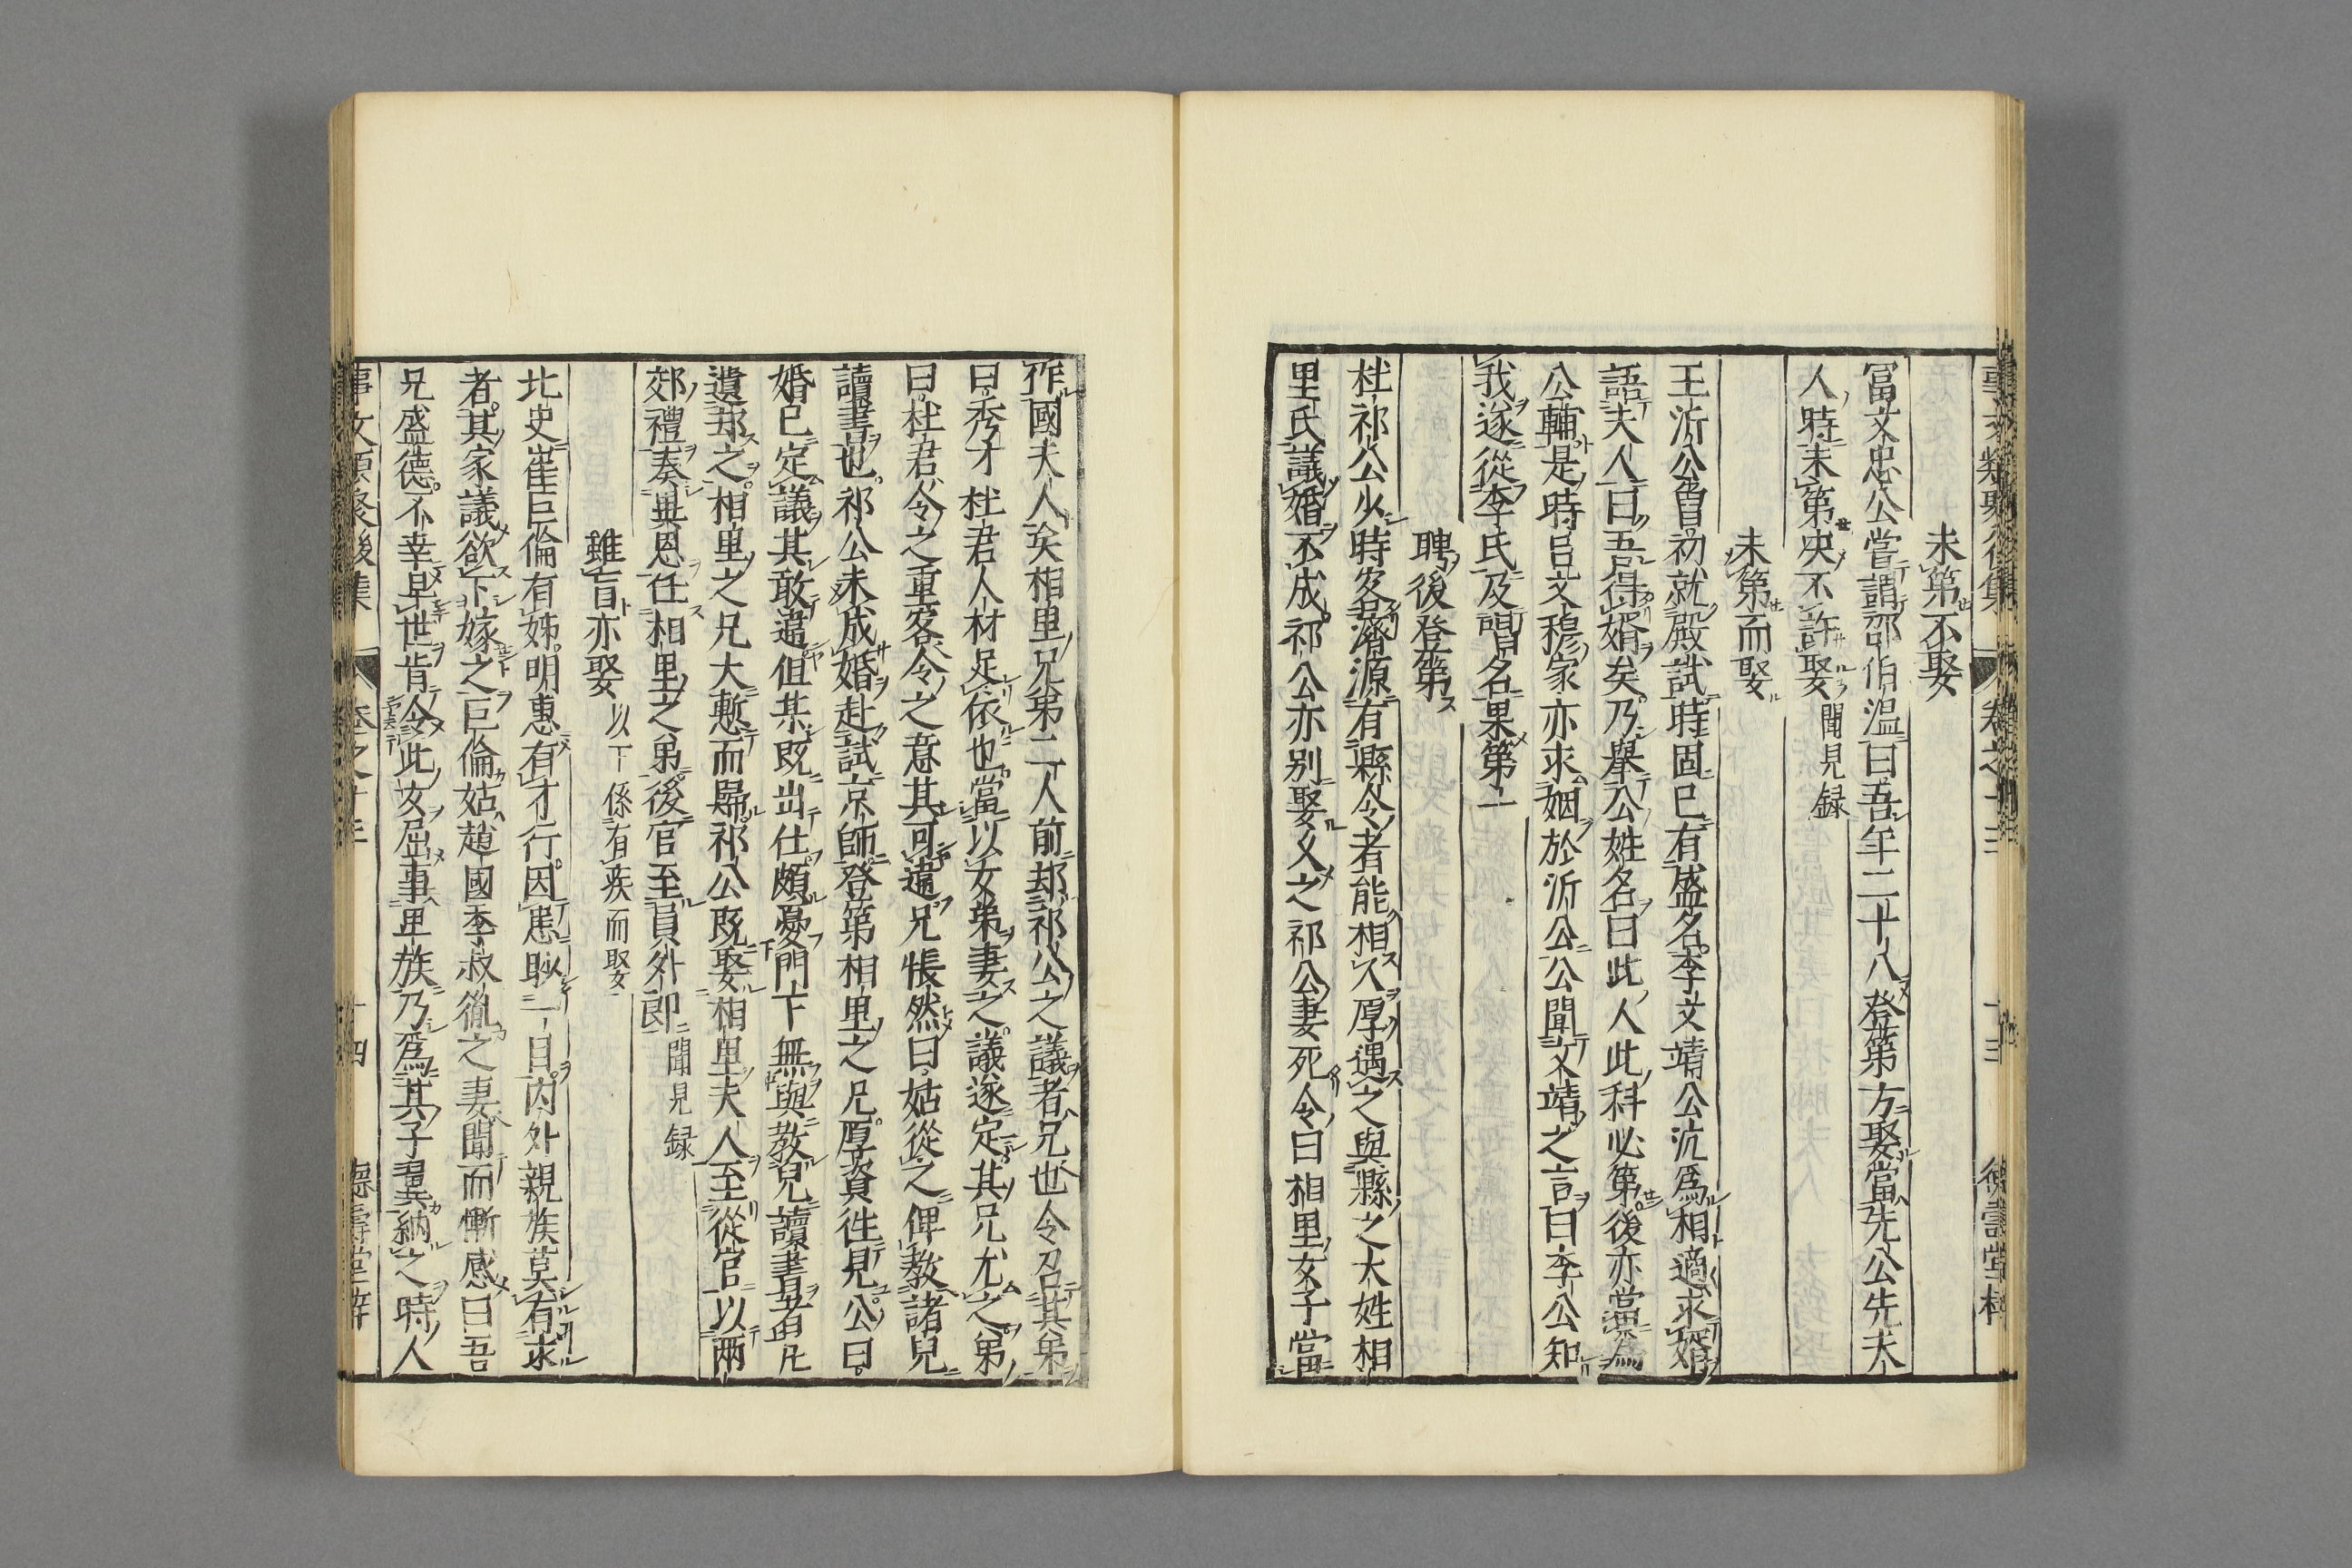 事文類聚後集 卷之十三 十三 德壽堂梓
未第不娶
冨文忠公嘗謂邵伯温曰吾年二十八登第方娶當先公先夫
人時未第决不許娶聞見録
未第而娶
王沂公曽初就殿試時固已有盛名李文靖公沆爲相適求婿
語夫人曰吾得婿矣乃舉公姓名曰此人此科必第後亦當爲
公輔是時吕文穆家亦求姻於沂公公聞文靖之言曰李公知
我遂從李氏及唱名果第一
聘後登第
杜祁公少時客濟源有縣令者能相人厚遇之與縣之大姓相
里氏議婚不成祁公亦别娶乆之祁公妻死令曰相里女子當
作國夫人矣相里兄弟二人前却祁公之議者兄也令召其弟
曰秀才杜君人材足依也當以女弟妻之議遂定其兄尤之弟
曰杜君令之重客令之意其可違兄悵然曰姑從之俾教諸兒
讀書也祁公未成婚赴試京師登第相里之兄厚資徃見公曰
婚已定議其敢違但某既出仕頗憂門下無與教兒讀書者凡
遺却之相里之兄大慙而歸祁公既娶相里夫人至從官以兩
郊禮奏異恩任相里之弟後官至員外郎聞見録
雖盲亦娶以下係有疾而娶
北史崔巨倫有姊明惠有才行因患眇一目内外親族莫有求
者其家議欲下嫁之巨倫姑趙國李叔胤之妻聞而慚感曰吾
兄盛德不幸早世肯令此女屈事卑族乃爲其子翼納之時人
事文類聚後集 卷之十三 十四 德壽堂梓